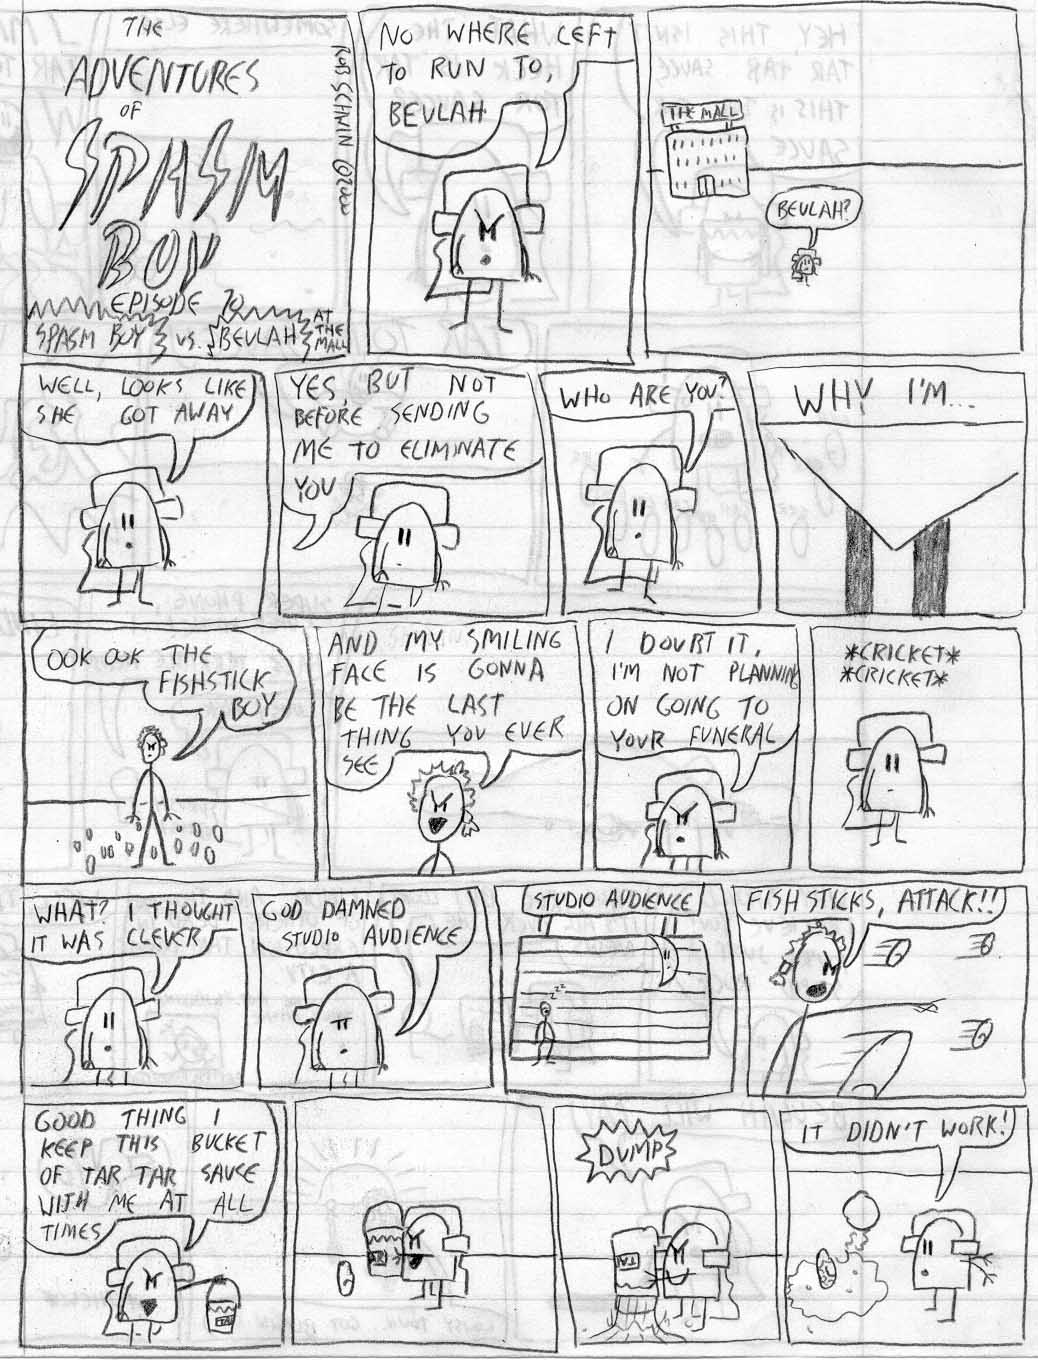 THE
ADVENTURES
OF
SPASM
BOY
EPISODE 70
SPASM BOY VS. BEULAH AT
THE
MALL
ROB SCHWIN
NO WHERE LEFT
TO RUN TO,
BEULAH
THE MALL
BEULAH?
WELL, LOOKS LIKE
SHE GOT AWAY
YES, BUT NOT
BEFORE SENDING
ME TO ELIMINATE
YOU
WHO ARE YOU?
WHY I'M...
OOK OOK THE
FISHSTICK
BOY
AND MY SMILING
FACE IS GONNA
BE THE LAST
THING YOU EVER
SEE
I DOUBT IT,
I'M NOT PLANNING
ON GOING TO
YOUR FUNERAL
*CRICKET*
*CRICKET*
WHAT? I THOUGHT
IT WAS CLEVER
GOD DAMNED
STUDIO AUDIENCE
STUDIO AUDIENCE
zzz
FISHSTICKS, ATTACK!!
GOOD THING I
KEEP THIS BUCKET
OF TAR TAR SAUCE
WITH ME AT ALL
TIMES
TAR
TAR
DUMP
TAR
IT DIDN'T WORK!